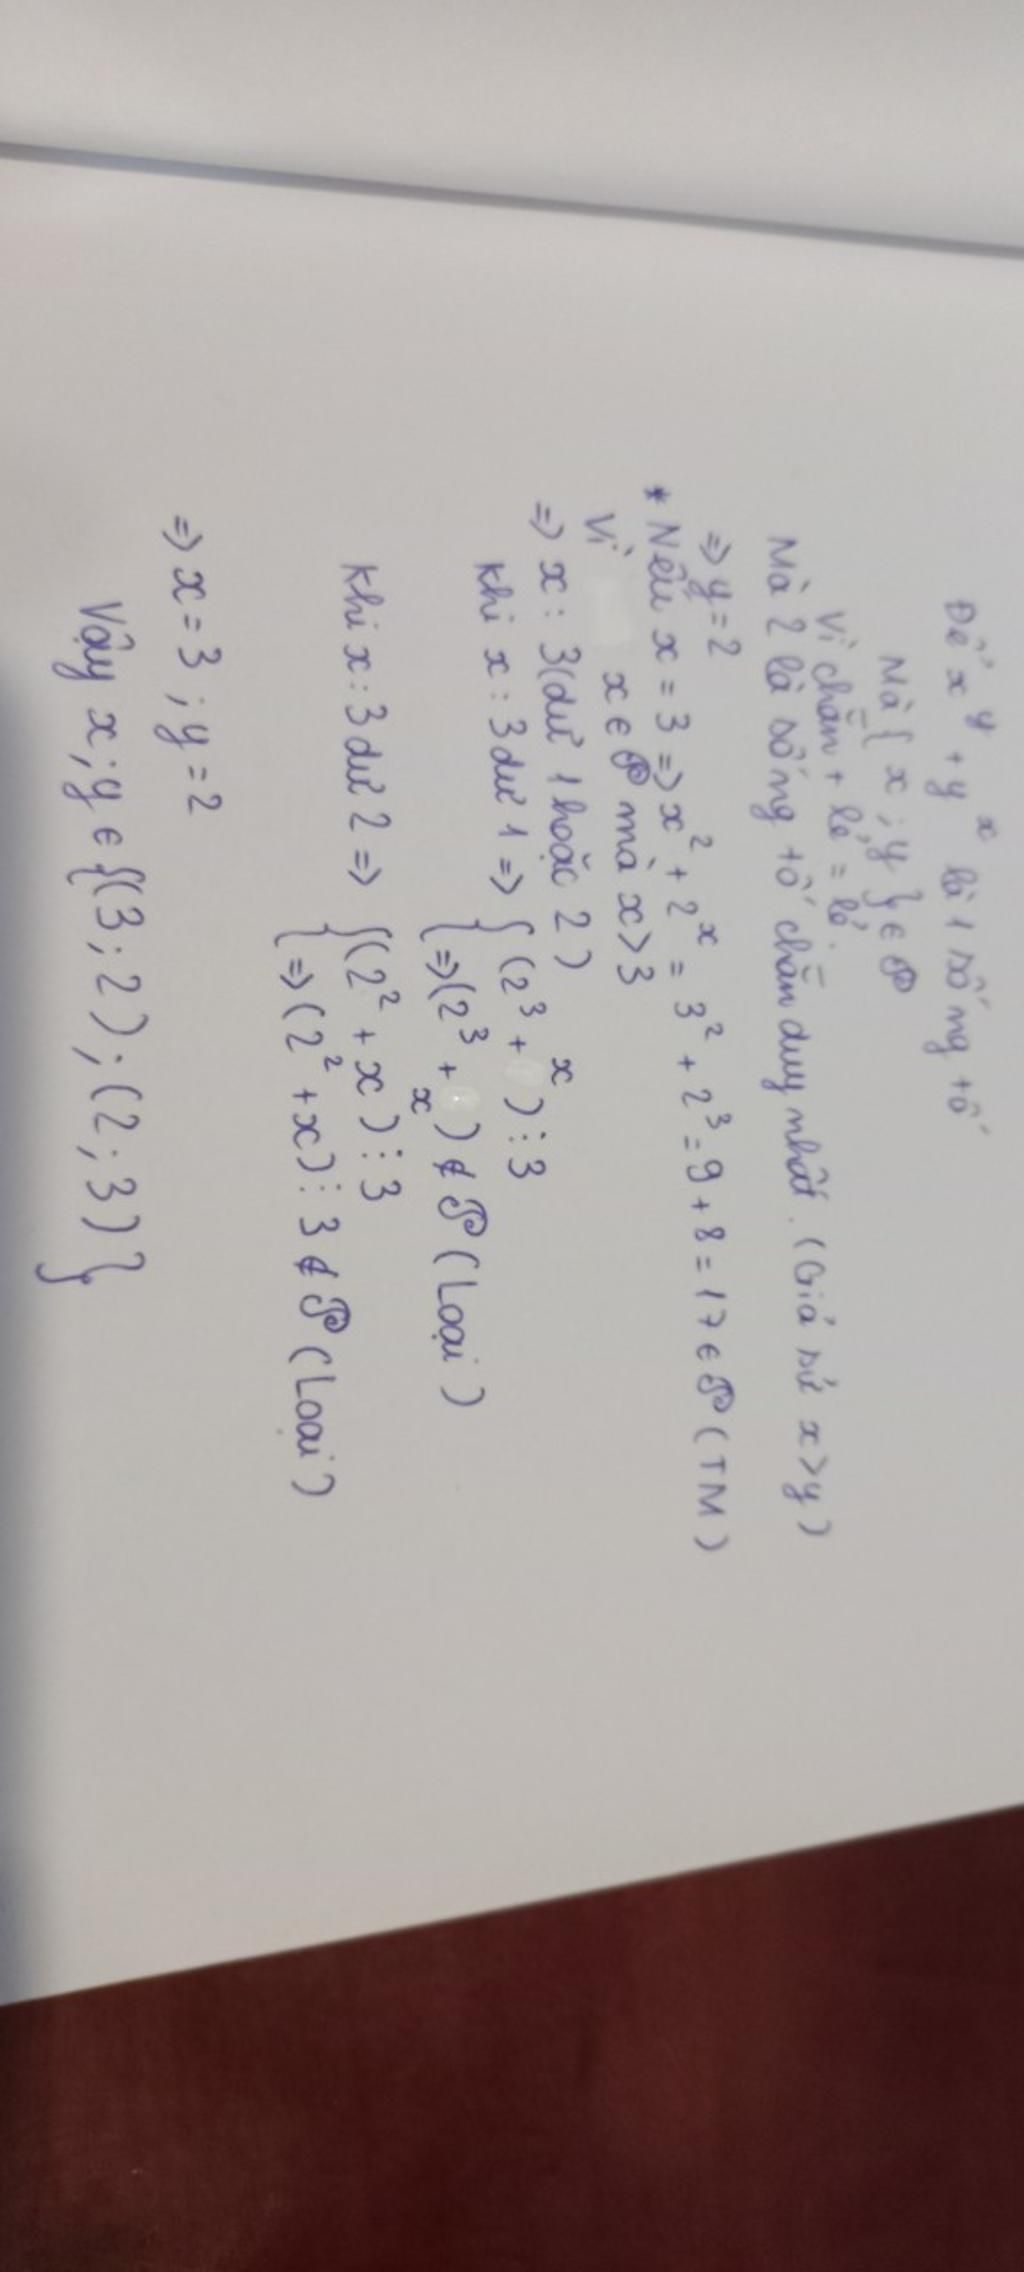 Để x^y + y^x là 1 số ng tố
Mà { x ; y } ∈ P
Vì chẵn + lẻ = lẻ.
Mà 2 là số ng tố chẵn duy nhất. (Giả sử x > y)
=> y = 2
* Nếu x = 3 => x² + 2^x = 3² + 2³ = 9 + 8 = 17 ∈ P (TM)
Vì x ∈ P mà x > 3
=> x : 3 (dư 1 hoặc 2)
Khi x : 3 dư 1 => { (2³ + x) ⋮ 3
{ => (2³ + x) ∉ P (Loại)
Khi x : 3 dư 2 => { (2² + x) ⋮ 3
{ => (2² + x) ⋮ 3 ∉ P (Loại)
=> x = 3 ; y = 2
Vậy x ; y ∈ {(3 ; 2) ; (2 ; 3)}